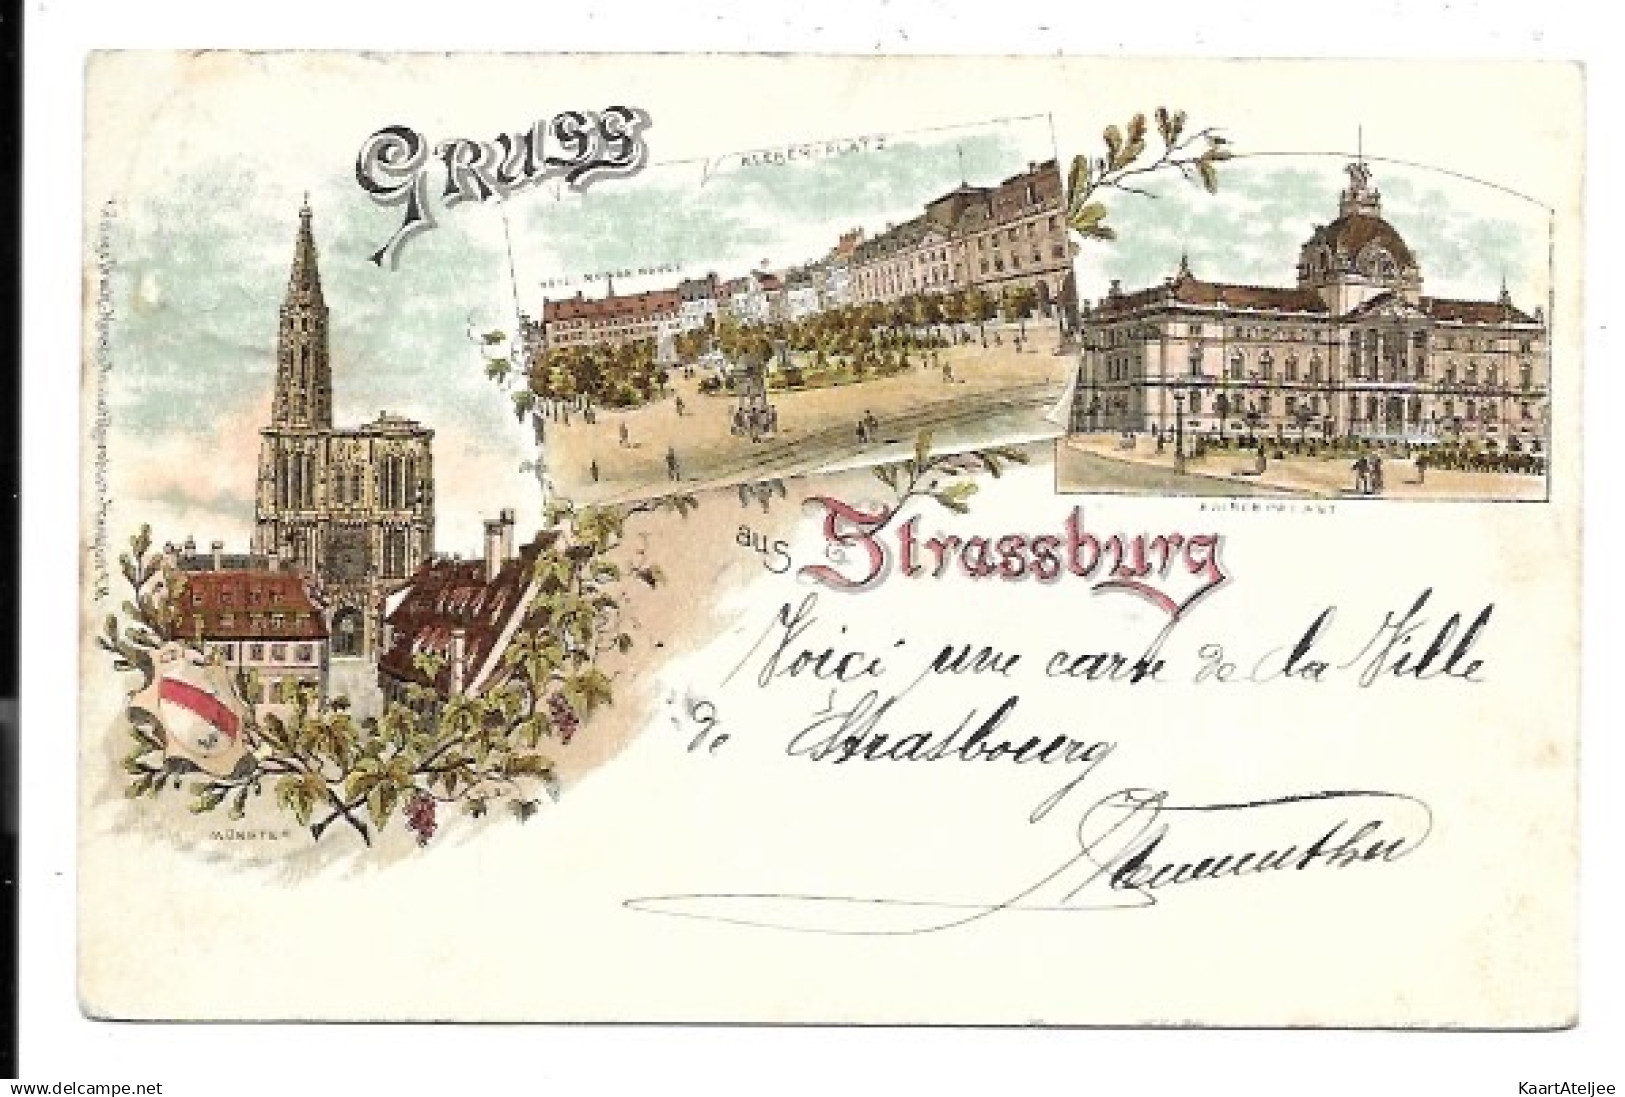 GRUSS
KLEBER-PLATZ
HOTEL MAISON ROUGE
aus Strassburg
KAISERPALAST
MÜNSTER
Voici une carte de la Ville
de Strasbourg
www.delcampe.net
KaartAteljee